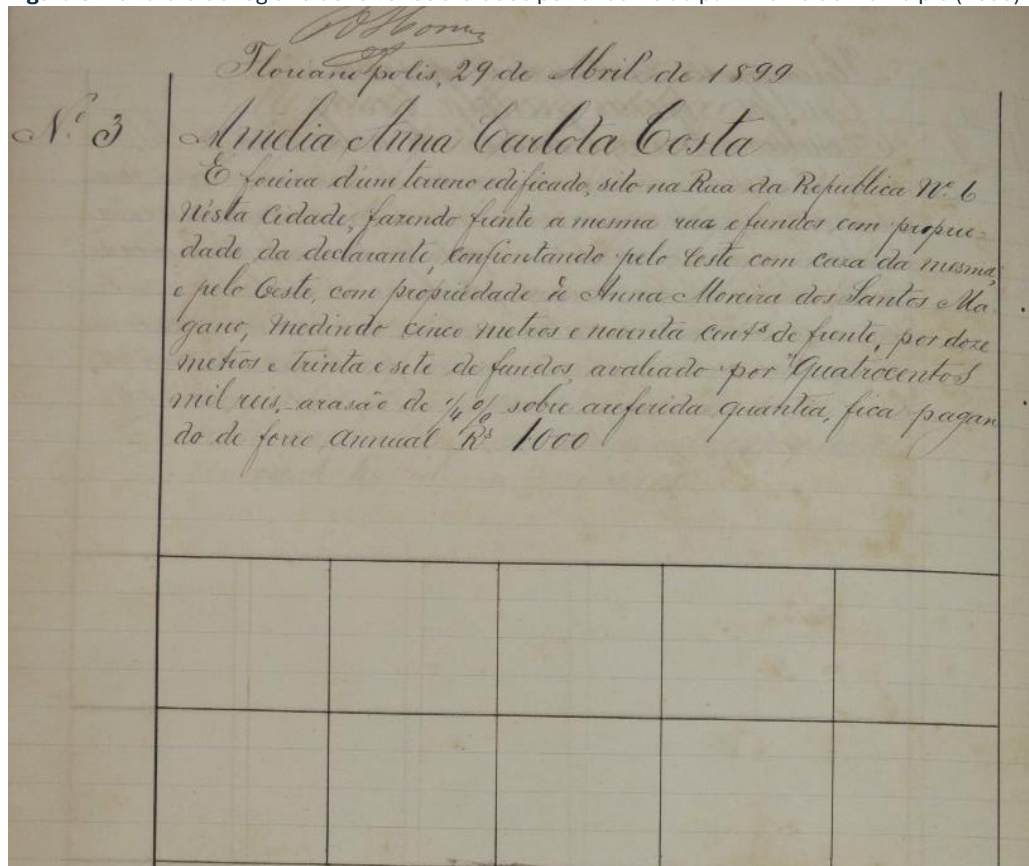 Florianopolis, 29 de Abril de 1899
Nº 3
Amelia Anna Carlota Costa
É foreira d'um terreno edificado, sito na Rua da Republica Nº 6
Nesta Cidade, fazendo frente a mesma rua e fundos com proprie-
dade da declarante, confrontando pelo Leste com caza da mesma,
e pelo Oeste, com propriedade de Anna Moreira dos Santos Ma-
gano, medindo cinco metros e noventa centˢ de frente, por doze
metros e trinta e sete de fundos, avaliado por "Quatrocentos
mil reis, arasão de 1/4 % sobre areferida quantia, fica pagan
do de forro annual Rˢ 1000